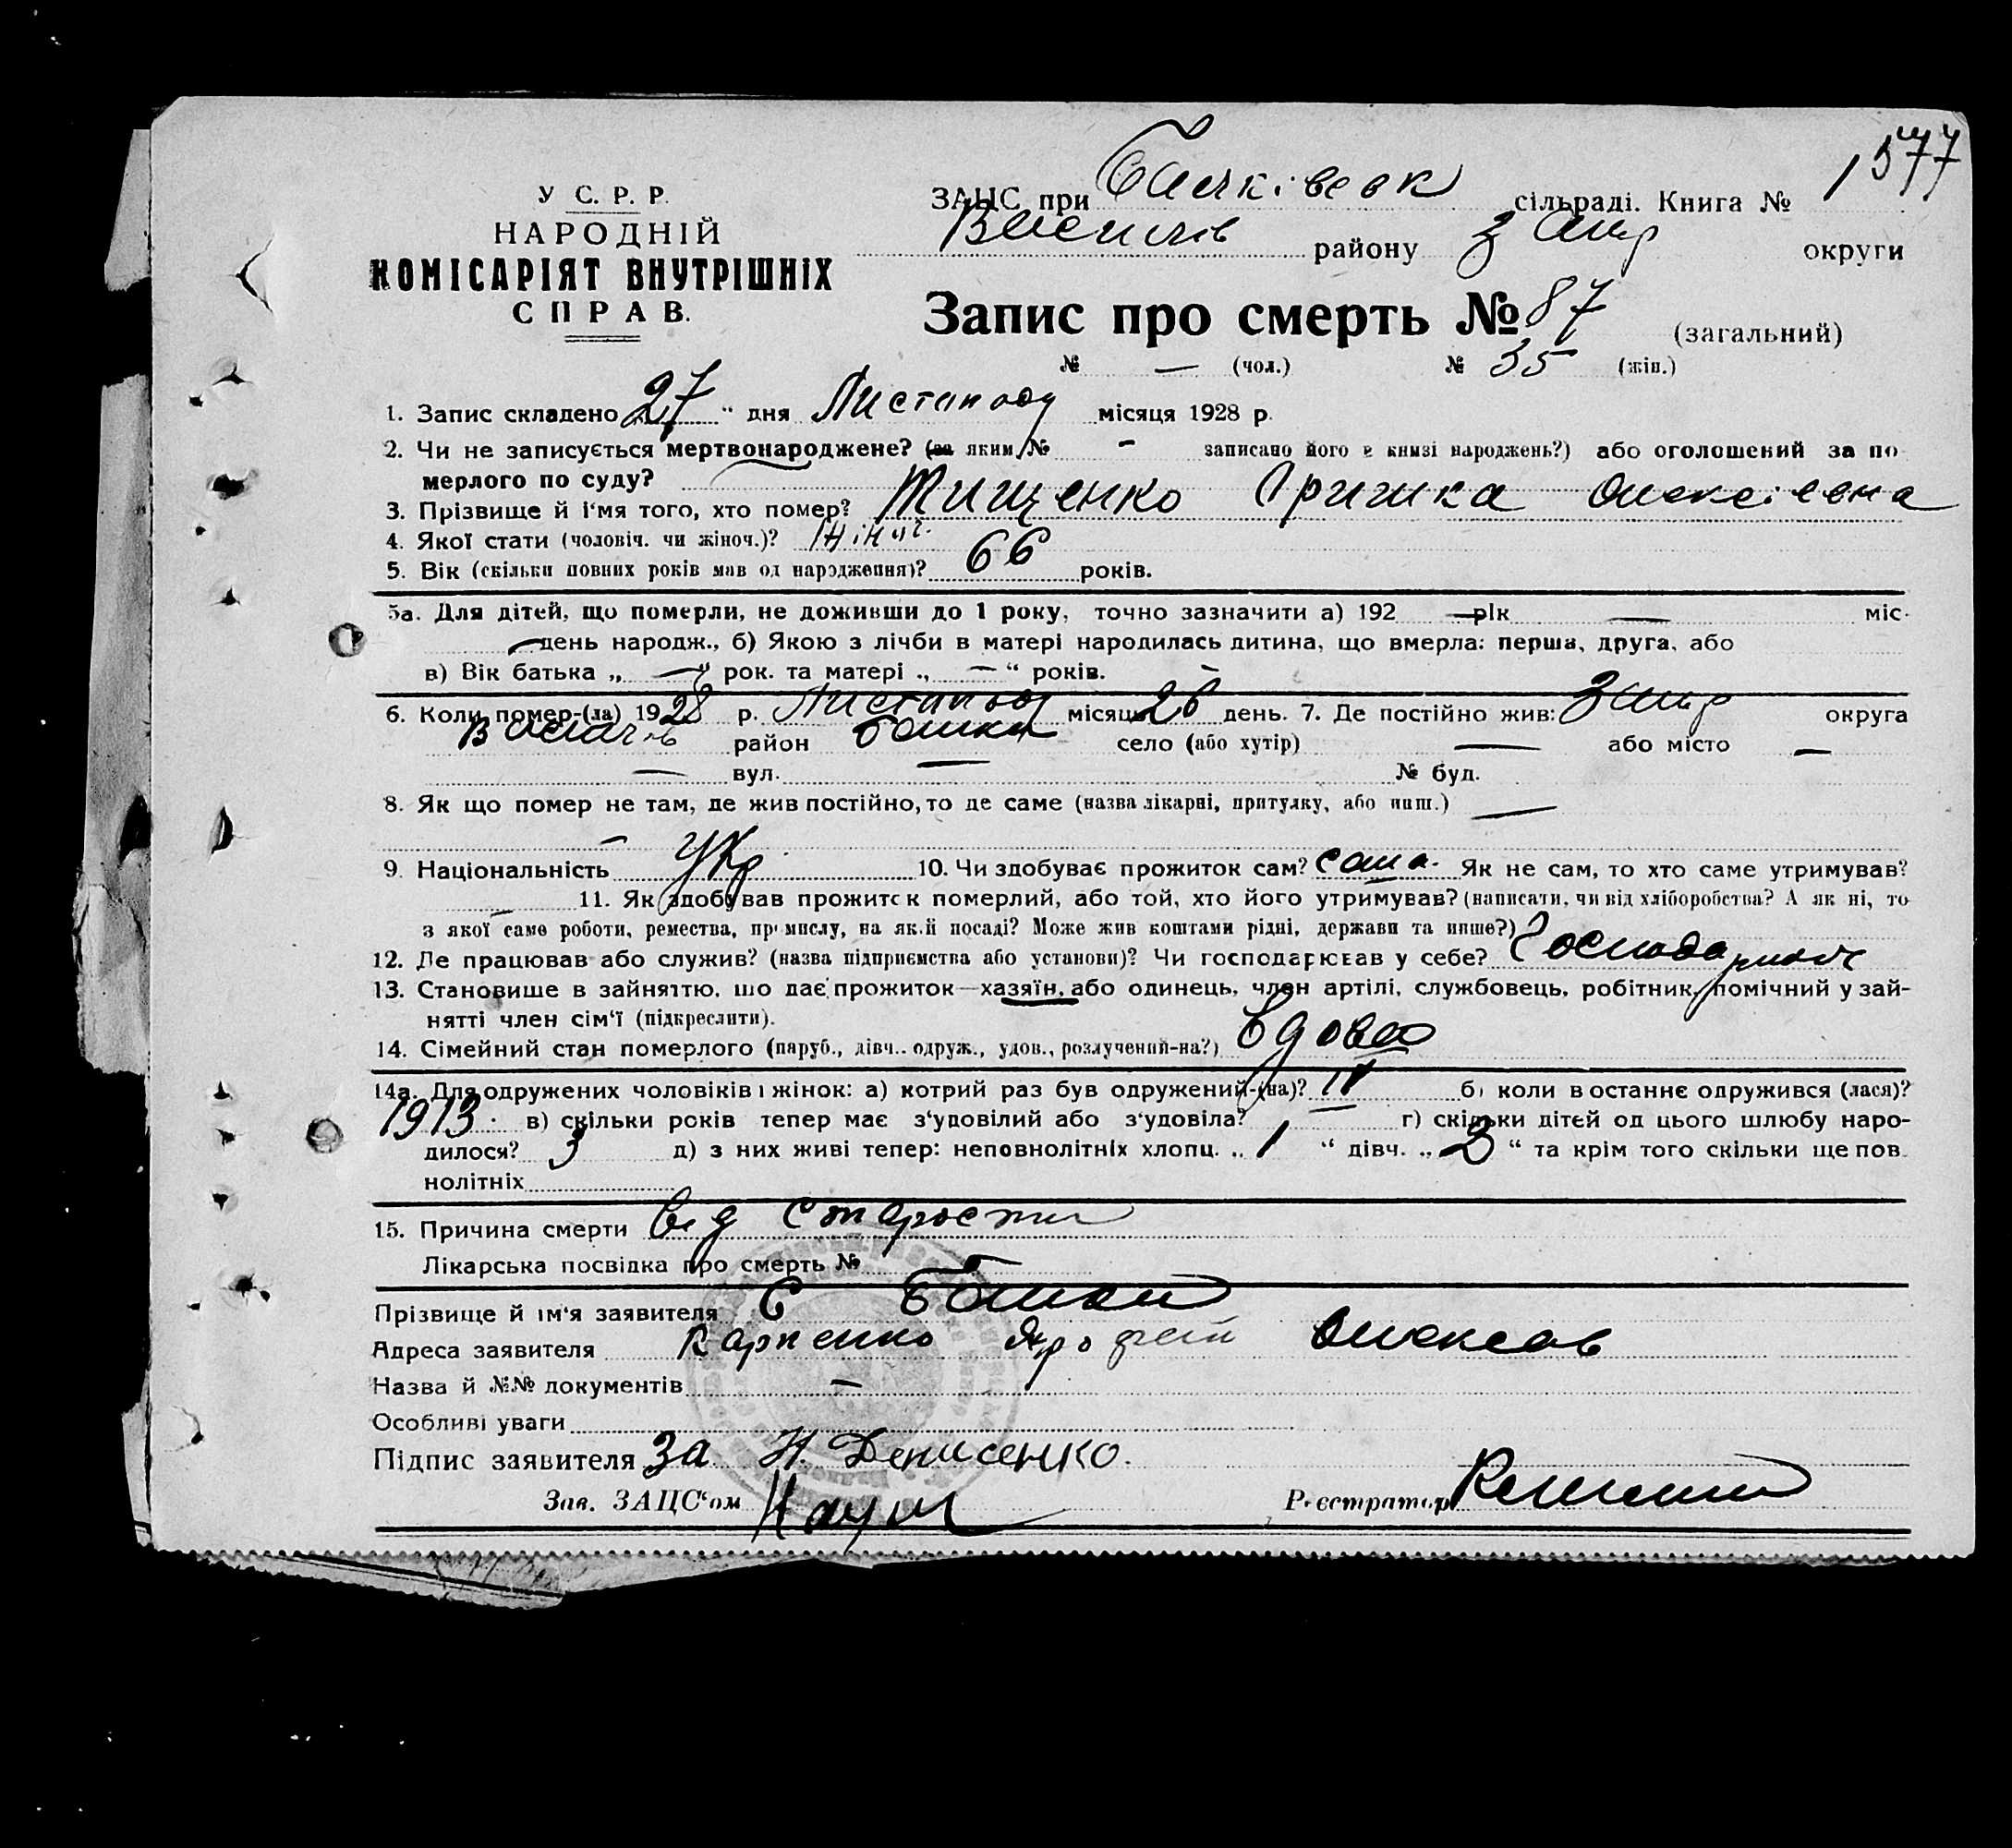 1577
У С. Р. Р.
НАРОДНІЙ
КОМІСАРІЯТ ВНУТРІШНІХ
СПРАВ.
ЗАЦС при Балківськ сільраді. Книга №
Василів району Запор округи
Запис про смерть № 87 (загальний)
№ — (чол.) № 35 (жін.)
1. Запис складено 27 " дня Листопаду місяця 1928 р.
2. Чи не записується мертвонароджене? (за яким № - записано його в книзі народжень?) або оголошений за по
мерлого по суду?
3. Прізвище й ім'я того, хто помер? Тищенко Олексіевна
4. Якої стати (чоловіч. чи жіноч.)? Жіноч.
5. Вік (скільки повних років мав од народження)? 66 років.
5а. Для дітей, що померли, не доживши до 1 року, точно зазначити а) 192 — рік — міс.
— день народж., б) Якою з лічби в матері народилась дитина, що вмерла: перша, друга, або
в) Вік батька „ — " рок. та матері „ — " років.
6. Коли помер-(ла) 1928 р. Листопаду місяць 26 день. 7. Де постійно жив: Запор округа
Василів район Балки село (або хутір) — або місто —
— вул. — № буд.
8. Як що помер не там, де жив постійно, то де саме (назва лікарні, притулку, або инш.) —
—
9. Національність Укр. 10. Чи здобуває прожиток сам? сама. Як не сам, то хто саме утримував?
— 11. Як здобував прожиток померлий, або той, хто його утримував? (написати, чи від хліборобства? А як ні, то
з якої саме роботи, ремества, промислу, на якій посаді? Може жив коштами рідні, держави та инше?)
12. Де працював або служив? (назва підприємства або установи)? Чи господарював у себе?
13. Становище в зайняттю, що дає прожиток—хазяїн, або одинець, член артілі, службовець, робітник, помічний у зай-
нятті член сім'ї (підкреслити).
14. Сімейний стан померлого (паруб., дівч.. одруж., удов., розлучений-на?) вдова
14а. Для одружених чоловіків і жінок: а) котрий раз був одружений-(на)? б) коли в останнє одружився (лася)?
1913. в) скільки років тепер має з'удовілий або з'удовіла? — г) скільки дітей од цього шлюбу наро-
дилося? 3 д) з них живі тепер: неповнолітніх хлопц. „ 1 " дівч. „ 2 " та крім того скільки ще пов
нолітніх
15. Причина смерти від старости
Лікарська посвідка про смерть № -
Прізвище й ім'я заявителя С Балки
Адреса заявителя Карпенко Олексов
Назва й №№ документів —
Особливі уваги
Підпис заявителя За Н. Денисенко.
Зав. ЗАЦС'ом Реєстратор